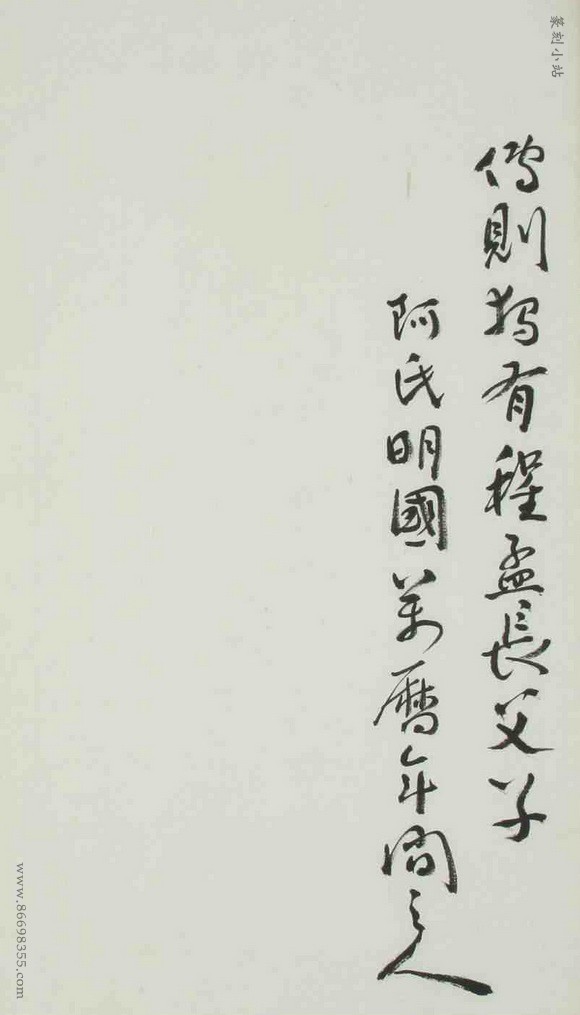 篆刻小站
傳則獨有程孟長父子
阿氏明國萬曆年間之人
www.86698355.com